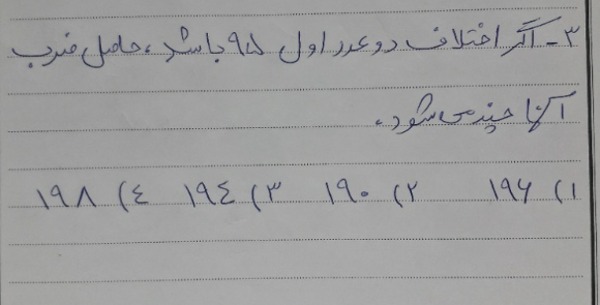 ۳- اگر اختلاف دو عدد اول ۹۵ باشد، حاصل ضرب
آنها چند می شود.
۱) ۱۹۶ ۲) ۱۹۰ ۳) ۱۹۴ ۴) ۱۹۸